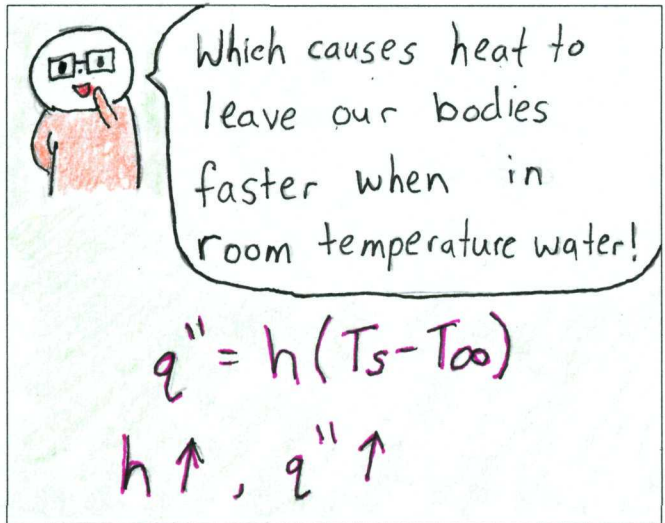 Which causes heat to
leave our bodies
faster when in
room temperature water!
q" = h(Ts-T∞)
h↑, q"↑